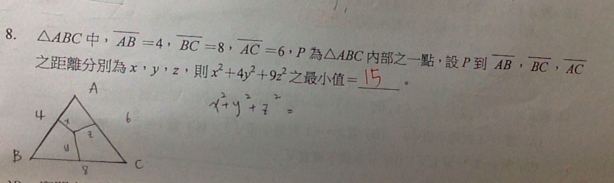 8. △ABC 中，AB=4，BC=8，AC=6，P 為△ABC 內部之一點，設 P 到 AB，BC，AC
之距離分別為 x，y，z，則 x²+4y²+9z² 之最小值= 15 。
x²+y²+z² =
A
4 x z 6
y
B 8 C